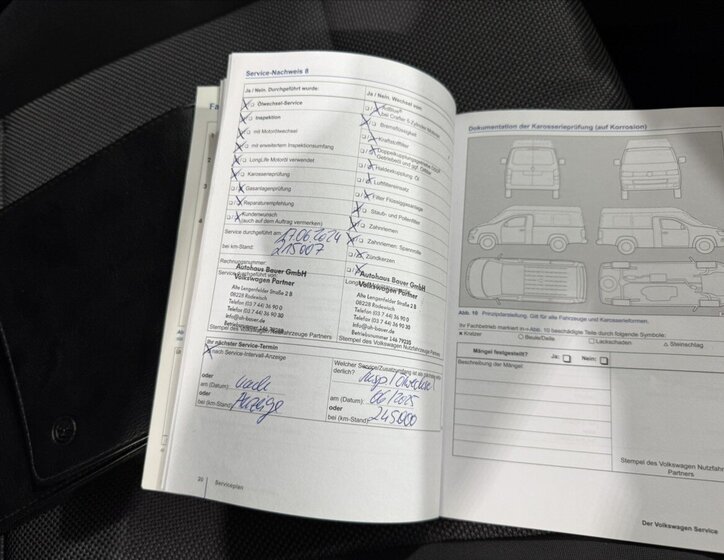 Service-Nachweis 8
Ja / Nein. Durchgeführt wurde:
Ölwechsel-Service
Inspektion
mit Motorölwechsel
mit erweitertem Inspektionsumfang
LongLife Motoröl verwendet
Karosserieprüfung
Gasanlagenprüfung
Reparaturempfehlung
Kundenwunsch
(auch auf dem Auftrag vermerken)
Service durchgeführt am: 17.06.2024
bei km-Stand: 215007
Rechnungsnummer:
Service durchgeführt von:
Autohaus Bauer GmbH
Volkswagen Partner
Alte Lengenfelder Straße 2 B
08228 Rodewisch
Telefon (03 7 44) 36 90 0
Telefax (03 7 44) 36 90 30
info@ah-bauer.de
Betriebsnummer 146
Stempel des Volkswagen Nutzfahrzeuge Partners
Ja / Nein. Wechsel von:
AdBlue®
bei Crafter 5-Zylinder-Motoren
Bremsflüssigkeit
Kraftstofffilter
Doppelkupplungsgetriebe (DSG)
Getriebeöl und ggf. Ölfilter
Haldexkupplung: Öl
Luftfiltereinsatz
Filter Flüssiggasanlage
Staub- und Pollenfilter
Zahnriemen
Zahnriemen: Spannrolle
Zündkerzen
Autohaus Bauer GmbH
Volkswagen Partner
Alte Lengenfelder Straße 2 B
08228 Rodewisch
Telefon (03 7 44) 36 90 0
Telefax (03 7 44) 36 90 30
info@ah-bauer.de
Betriebsnummer 146 79035
Stempel des Volkswagen Nutzfahrzeuge Partners
Ihr nächster Service-Termin
nach Service-Intervall-Anzeige
oder
am (Datum): nach
oder
bei (km-Stand): Anzeige
Welcher Service/Zusatzumfang ist als nächstes erfor-
derlich?
Insp/Ölwechsel
am (Datum): 06/2025
oder
bei (km-Stand): 245000
20
Serviceplan
Dokumentation der Karosserieprüfung (auf Korrosion)
Abb. 10 Prinzipdarstellung. Gilt für alle Fahrzeuge und Karosserieformen.
Ihr Fachbetrieb markiert in ⇒Abb. 10 beschädigte Teile durch folgende Symbole:
× Kratzer
○ Beule/Delle
□ Lackschaden
△ Steinschlag
Mängel festgestellt?
Ja:
Nein:
Beschreibung der Mängel:
Stempel des Volkswagen Nutzfahr
Partners
Der Volkswagen Service